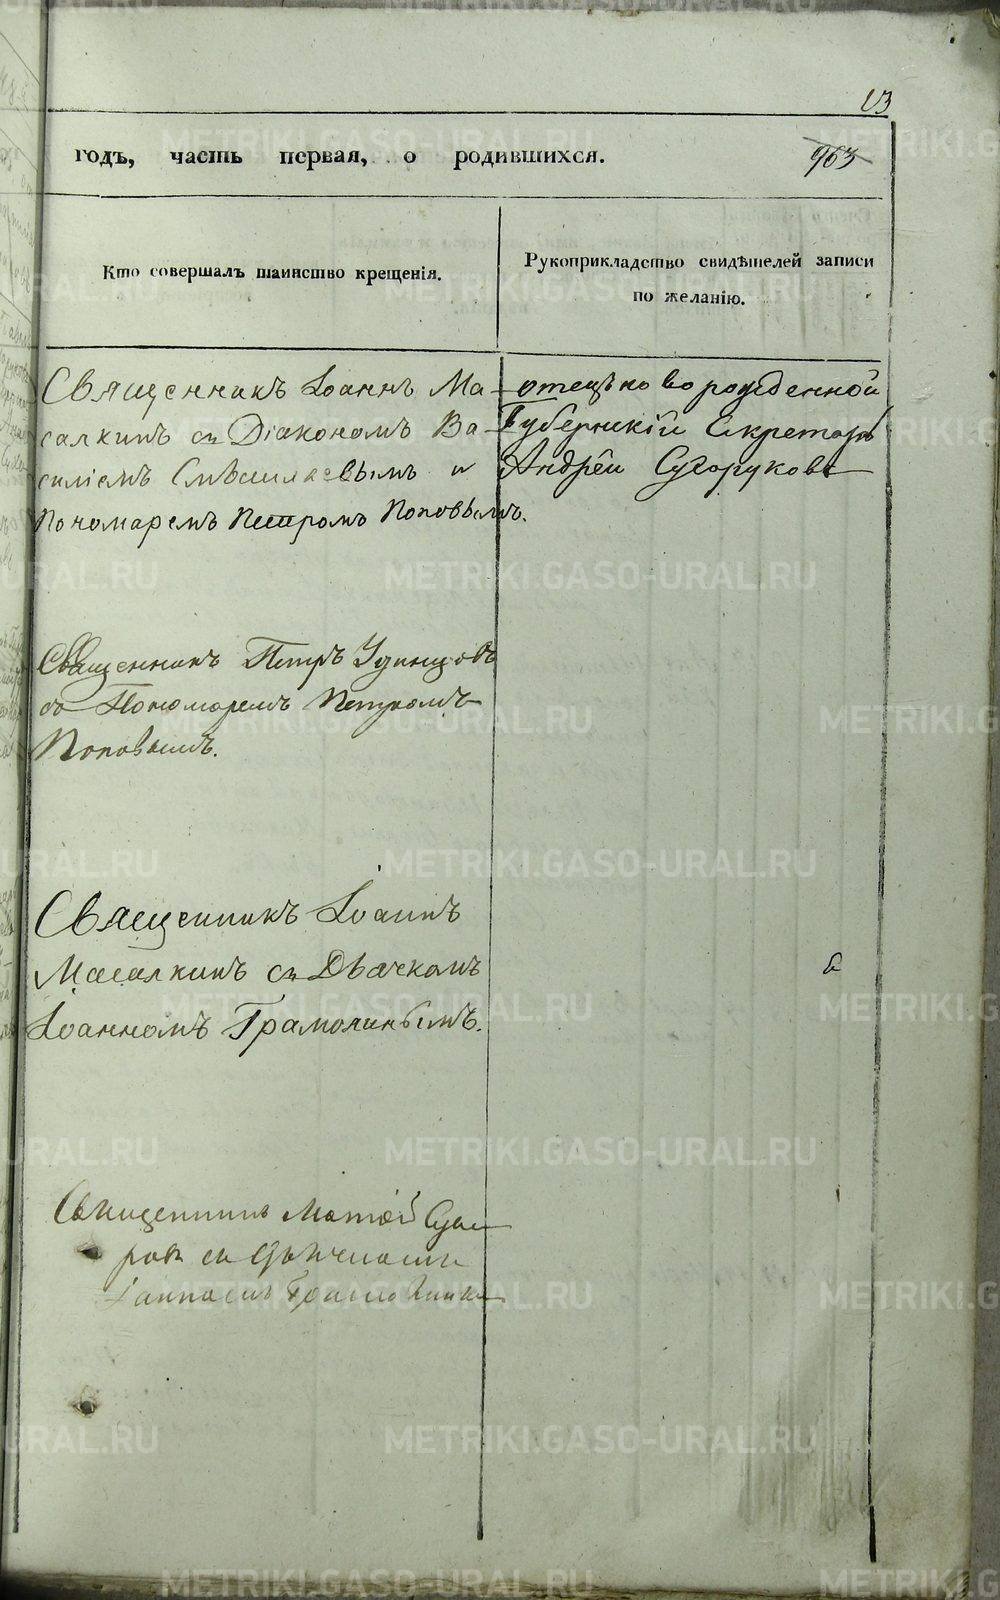 13
годъ, часть первая, о родившихся.
963
Кто совершалъ таинство крещенія.
Рукоприкладство свидѣтелей записи
по желанію.
Священникъ Іоаннъ Ма-
салкинъ съ Діакономъ Ва-
силіемъ Смышляевымъ и
Пономаремъ Петромъ Поповымъ.
отецъ новорожденной
Губернскій Секретарь
Андрей Сухоруковъ
Священникъ Петръ Удинцовъ
съ Пономаремъ Петромъ
Поповымъ.
Священникъ Іоаннъ
Масалкинъ съ Дьячкомъ
Іоанномъ Грамолинымъ.
Священникъ Матѳей
съ Дьячкомъ
METRIKI.GASO-URAL.RU